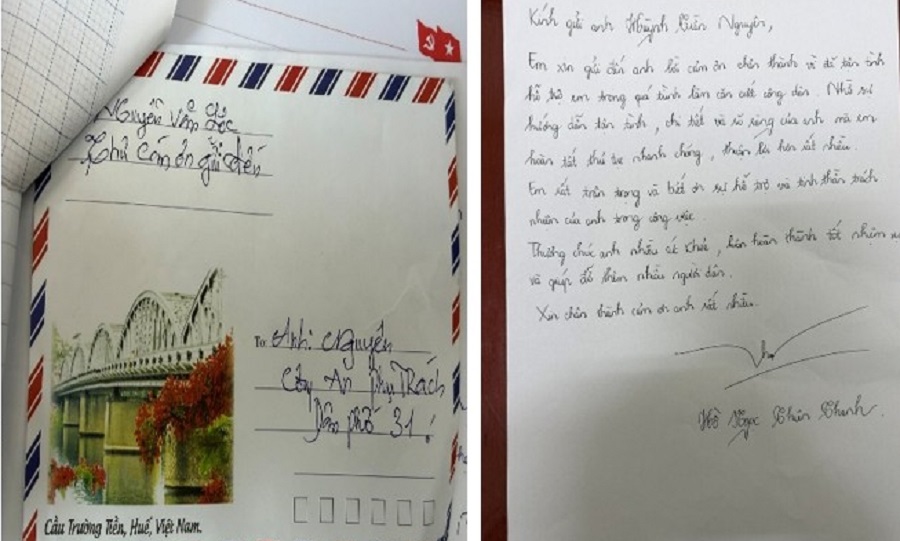 Nguyễn Văn Lộc
Thư cảm ơn gửi đến
To: Anh: Nguyên
Cây An phụ Trách
Dân phố 31
Cầu Trường Tiền, Huế, Việt Nam.
Kính gửi anh Huỳnh Xuân Nguyên,
Em xin gửi đến anh lời cảm ơn chân thành vì đã tận tình
hỗ trợ em trong quá trình làm căn cước công dân. Nhờ sự
hướng dẫn tận tình, chi tiết và rõ ràng của anh mà em
hoàn tất thủ tục nhanh chóng, thuận lợi hơn rất nhiều.
Em rất trân trọng và biết ơn sự hỗ trợ và tinh thần trách
nhiệm của anh trong công việc.
chúc anh nhiều sức khỏe, luôn hoàn thành tốt nhiệm vụ
và giúp đỡ thêm nhiều người dân.
Xin chân thành cảm ơn anh rất nhiều.
Hồ Ngọc Chân Thanh.